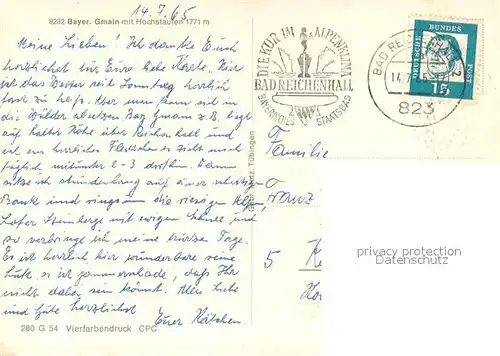 14.7.65
8232 Bayer. Gmain mit Hochstaufen 1771 m
Meine Lieben! Ich danke Euch
herzlichst für Eure liebe Karte. Hier
ist das Wetter seit Sonntag herrlich
fast zu heiß. Aber man kann sich in
die Wälder absetzen Bay Gmain z.B. liegt
auf halber Höhe über Reichenhall und
ist ein herrliches Fleckchen es zieht mich
täglich mitunter 2-3 dorthin. Dann
sitze ich stundenlang auf einer
Bank und ringsum die riesigen Alpen,
Loferer Steinberge mit ewigem Schnee und
so verbringe ich meine Tage.
Es ist herrlich hier wunderbare reine
Luft es ist jammerschade, daß Ihr
nicht dabei sein könnt. Alles Liebe
und Gute herzlichst
Eure Kätchen.
280 G 54 Vierfarbendruck CPC
Tübingen
DIE KUR IM ALPENKLIMA
BAD REICHENHALL
BAYERISCHES STAATSBAD
BAD REI
14.7.
823
DEUTSCHE BUNDESPOST
15
Familie
5
privacy protection
www.delcampe.net